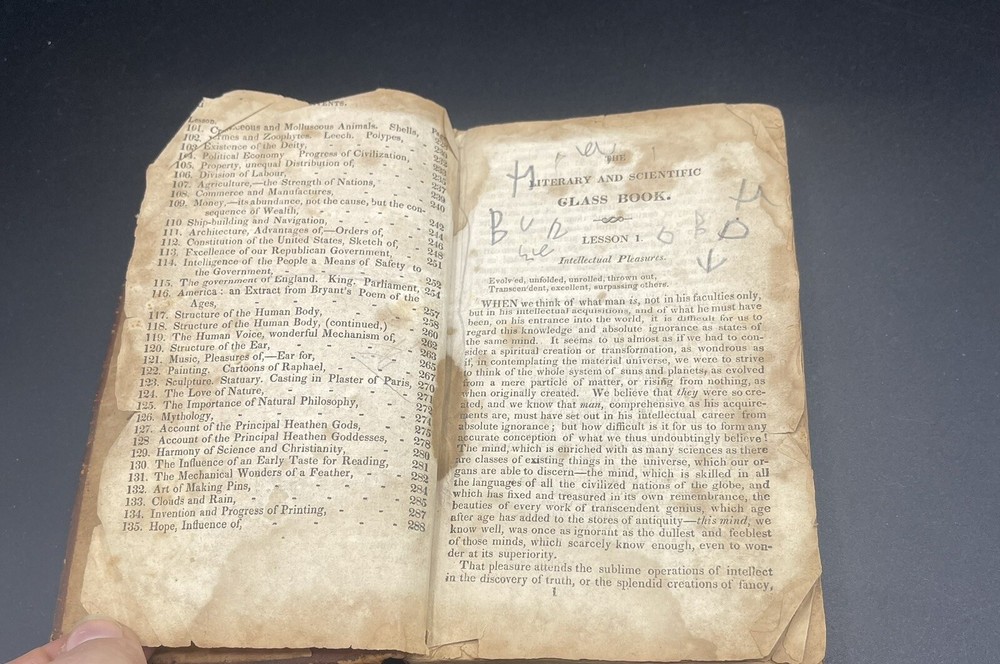 Lesson.
101. and Molluscous Animals. Shells,
102. and Zoophytes. Leech. Polypes, - -
103 Existence of the Deity, - - -
104. Political Economy Progress of Civilization, -
105. Property, unequal Distribution of, - - 233
106. Division of Labour, - - - 235
107. Agriculture,—the Strength of Nations, - - 237
108. Commerce and Manufactures, - - - 239
109. Money,—its abundance, not the cause, but the con- 240
sequence of Wealth, - - -
110 Ship-building and Navigation, - - - 242
111. Architecture, Advantages of,—Orders of, - - 244
112. Constitution of the United States, Sketch of, - 246
113. Excellence of our Republican Government, - 248
114. Inteligence of the People a Means of Safety to 251
the Government, - - - -
115. The government of England. King. Parliament, 252
116. America: an Extract from Bryant's Poem of the 254
Ages, - - - -
117. Structure of the Human Body, - - 257
118. Structure of the Human Body, (continued,) - 258
119. The Human Voice, wonderful Mechanism of, - 260
120. Structure of the Ear, - - - 262
121. Music, Pleasures of,—Ear for, - - - 263
122. Painting. Cartoons of Raphael, - - - 265
123. Sculpture. Statuary. Casting in Plaster of Paris, 267
124. The Love of Nature, - - - 270
125. The Importance of Natural Philosophy, - - 271
126. Mythology, - - - - 272
127. Account of the Principal Heathen Gods, - - 274
128 Account of the Principal Heathen Goddesses, - 275
129. Harmony of Science and Christianity, - - 278
130. The Influence of an Early Taste for Reading, - 280
131. The Mechanical Wonders of a Feather, - - 281
132. Art of Making Pins, - - - 282
133. Clouds and Rain, - - - - 284
134. Invention and Progress of Printing, - - 285
135. Hope, Influence of, - - - 287
288
THE
LITERARY AND SCIENTIFIC
CLASS BOOK.
B U R
LESSON 1.
Intellectual Pleasures.
Evolv'ed, unfolded, unrolled, thrown out,
Transcen'dent, excellent, surpassing others.
WHEN we think of what man is, not in his faculties only,
but in his intellectual acquisitions, and of what he must have
been, on his entrance into the world, it is difficult for us to
regard this knowledge and absolute ignorance as states of
the same mind. It seems to us almost as if we had to con-
sider a spiritual creation or transformation, as wondrous as
if, in contemplating the material universe, we were to strive
to think of the whole system of suns and planets, as evolved
from a mere particle of matter, or rising from nothing, as
when originally created. We believe that they were so cre-
ated, and we know that man, comprehensive as his acquire-
ments are, must have set out in his intellectual career from
absolute ignorance; but how difficult is it for us to form any
accurate conception of what we thus undoubtingly believe!
The mind, which is enriched with as many sciences as there
are classes of existing things in the universe, which our or-
gans are able to discern—the mind, which is skilled in all
the languages of all the civilized nations of the globe, and
which has fixed and treasured in its own remembrance, the
beauties of every work of transcendent genius, which age
after age has added to the stores of antiquity—this mind, we
know well, was once as ignorant as the dullest and feeblest
of those minds, which scarcely know enough, even to won-
der at its superiority.
That pleasure attends the sublime operations of intellect
in the discovery of truth, or the splendid creations of fancy,
1